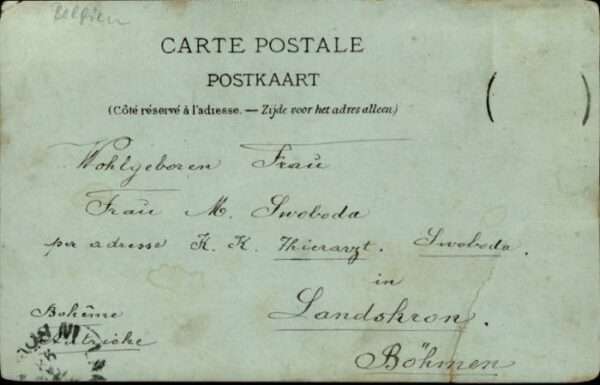 Belgien
CARTE POSTALE
POSTKAART
(Côté réservé à l'adresse. — Zijde voor het adres alleen)
Wohlgeboren Frau
Frau M. Swoboda
per adresse K. K. Thierarzt. Swoboda.
in
Landskron.
Bohême
Autriche
Böhmen